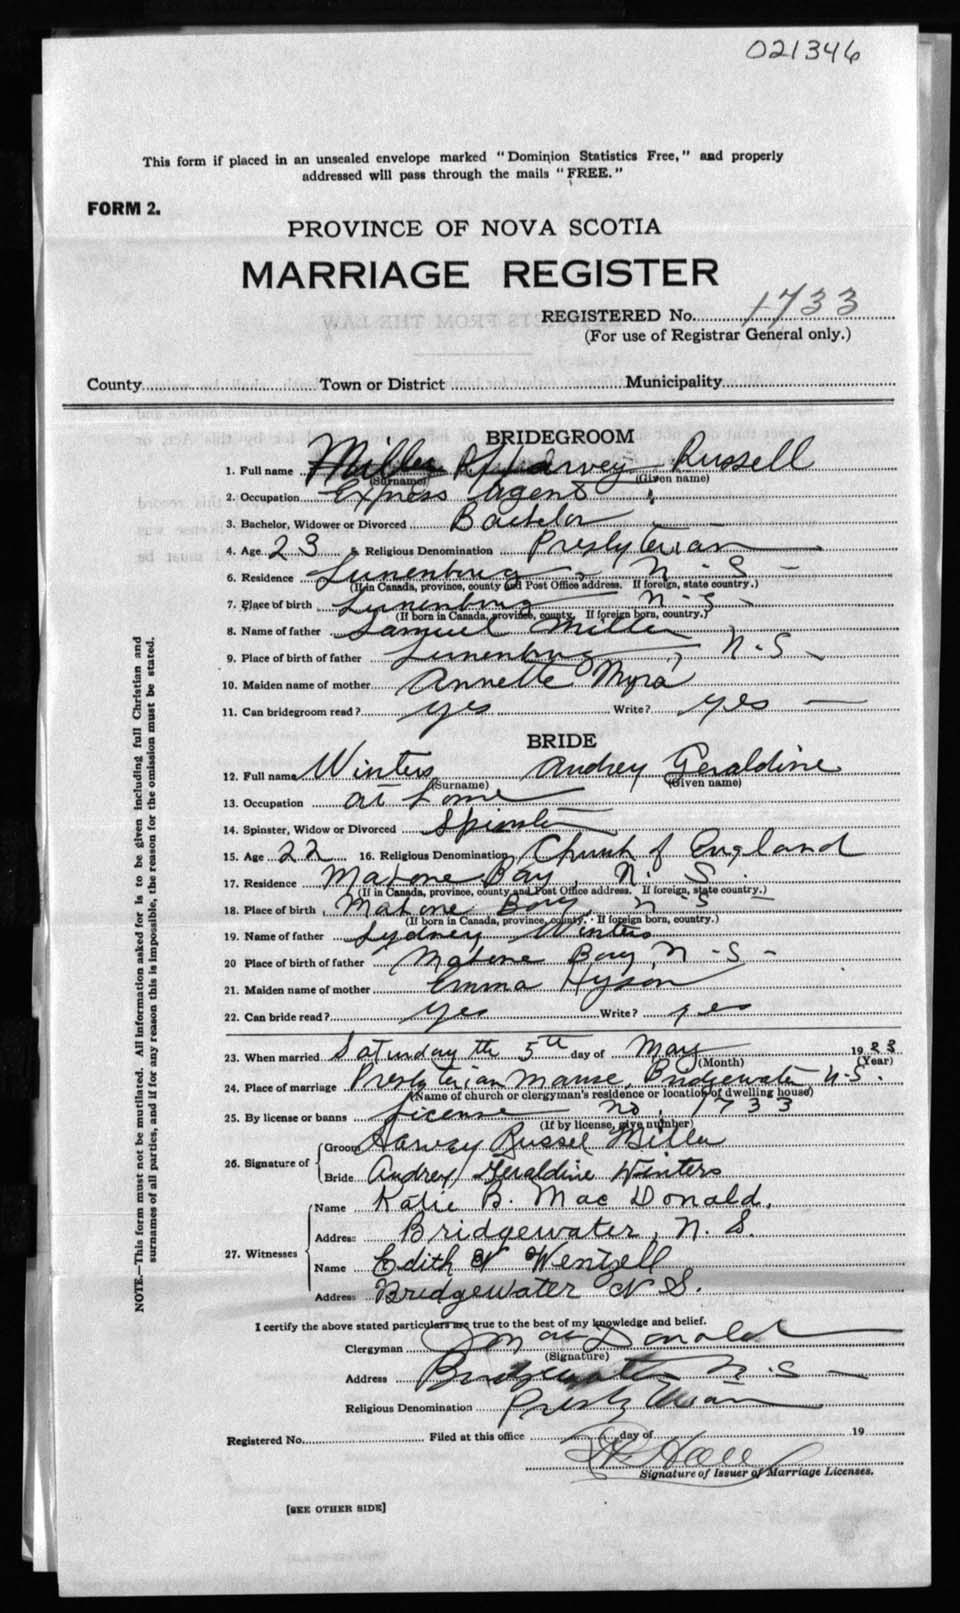 021346
This form if placed in an unsealed envelope marked "Dominion Statistics Free," and properly
addressed will pass through the mails "FREE."
FORM 2.
PROVINCE OF NOVA SCOTIA
MARRIAGE REGISTER
REGISTERED No. 1733
(For use of Registrar General only.)
County Town or District Municipality
BRIDEGROOM
1. Full name Miller Harvey Russell
(Surname) (Given name)
2. Occupation Express Agent
3. Bachelor, Widower or Divorced Bachelor
4. Age 23 5. Religious Denomination Presbyterian
6. Residence Lunenburg N.S.
(If in Canada, province, county and Post Office address. If foreign, state country.)
7. Place of birth Lunenburg N.S.
(If born in Canada, province, county. If foreign born, country.)
8. Name of father Samuel Miller
9. Place of birth of father Lunenburg, N.S.
10. Maiden name of mother Annette Myra
11. Can bridegroom read? yes Write? yes
BRIDE
12. Full name Winters Audrey Geraldine
(Surname) (Given name)
13. Occupation at home
14. Spinster, Widow or Divorced Spinster
15. Age 22 16. Religious Denomination Church of England
17. Residence Mahone Bay, N.S.
(If in Canada, province, county and Post Office address. If foreign, state country.)
18. Place of birth Mahone Bay, N.S.
(If born in Canada, province, county. If foreign born, country.)
19. Name of father Sydney Winters
20 Place of birth of father Mahone Bay, N.S.
21. Maiden name of mother Emma Hyson
22. Can bride read? yes Write? yes
23. When married Saturday the 5th day of May 1923
(Month) (Year)
24. Place of marriage Presbyterian Manse, Bridgewater N.S.
(Name of church or clergyman's residence or location of dwelling house)
25. By license or banns License no. 1733
(If by license, give number)
26. Signature of
Groom Harvey Russel Miller
Bride Audrey Geraldine Winters
27. Witnesses
Name Katie B. MacDonald,
Address Bridgewater, N.S.
Name Edith Wentzell
Address Bridgewater N.S.
I certify the above stated particulars are true to the best of my knowledge and belief.
Clergyman MacDonald
(Signature)
Address Bridgewater N.S.
Religious Denomination Presbyterian
Registered No. Filed at this office day of 19
Hall
Signature of Issuer of Marriage Licenses.
[SEE OTHER SIDE]
NOTE.—This form must not be mutilated. All information asked for is to be given including full Christian and
surnames of all parties, and if for any reason this is impossible, the reason for the omission must be stated.